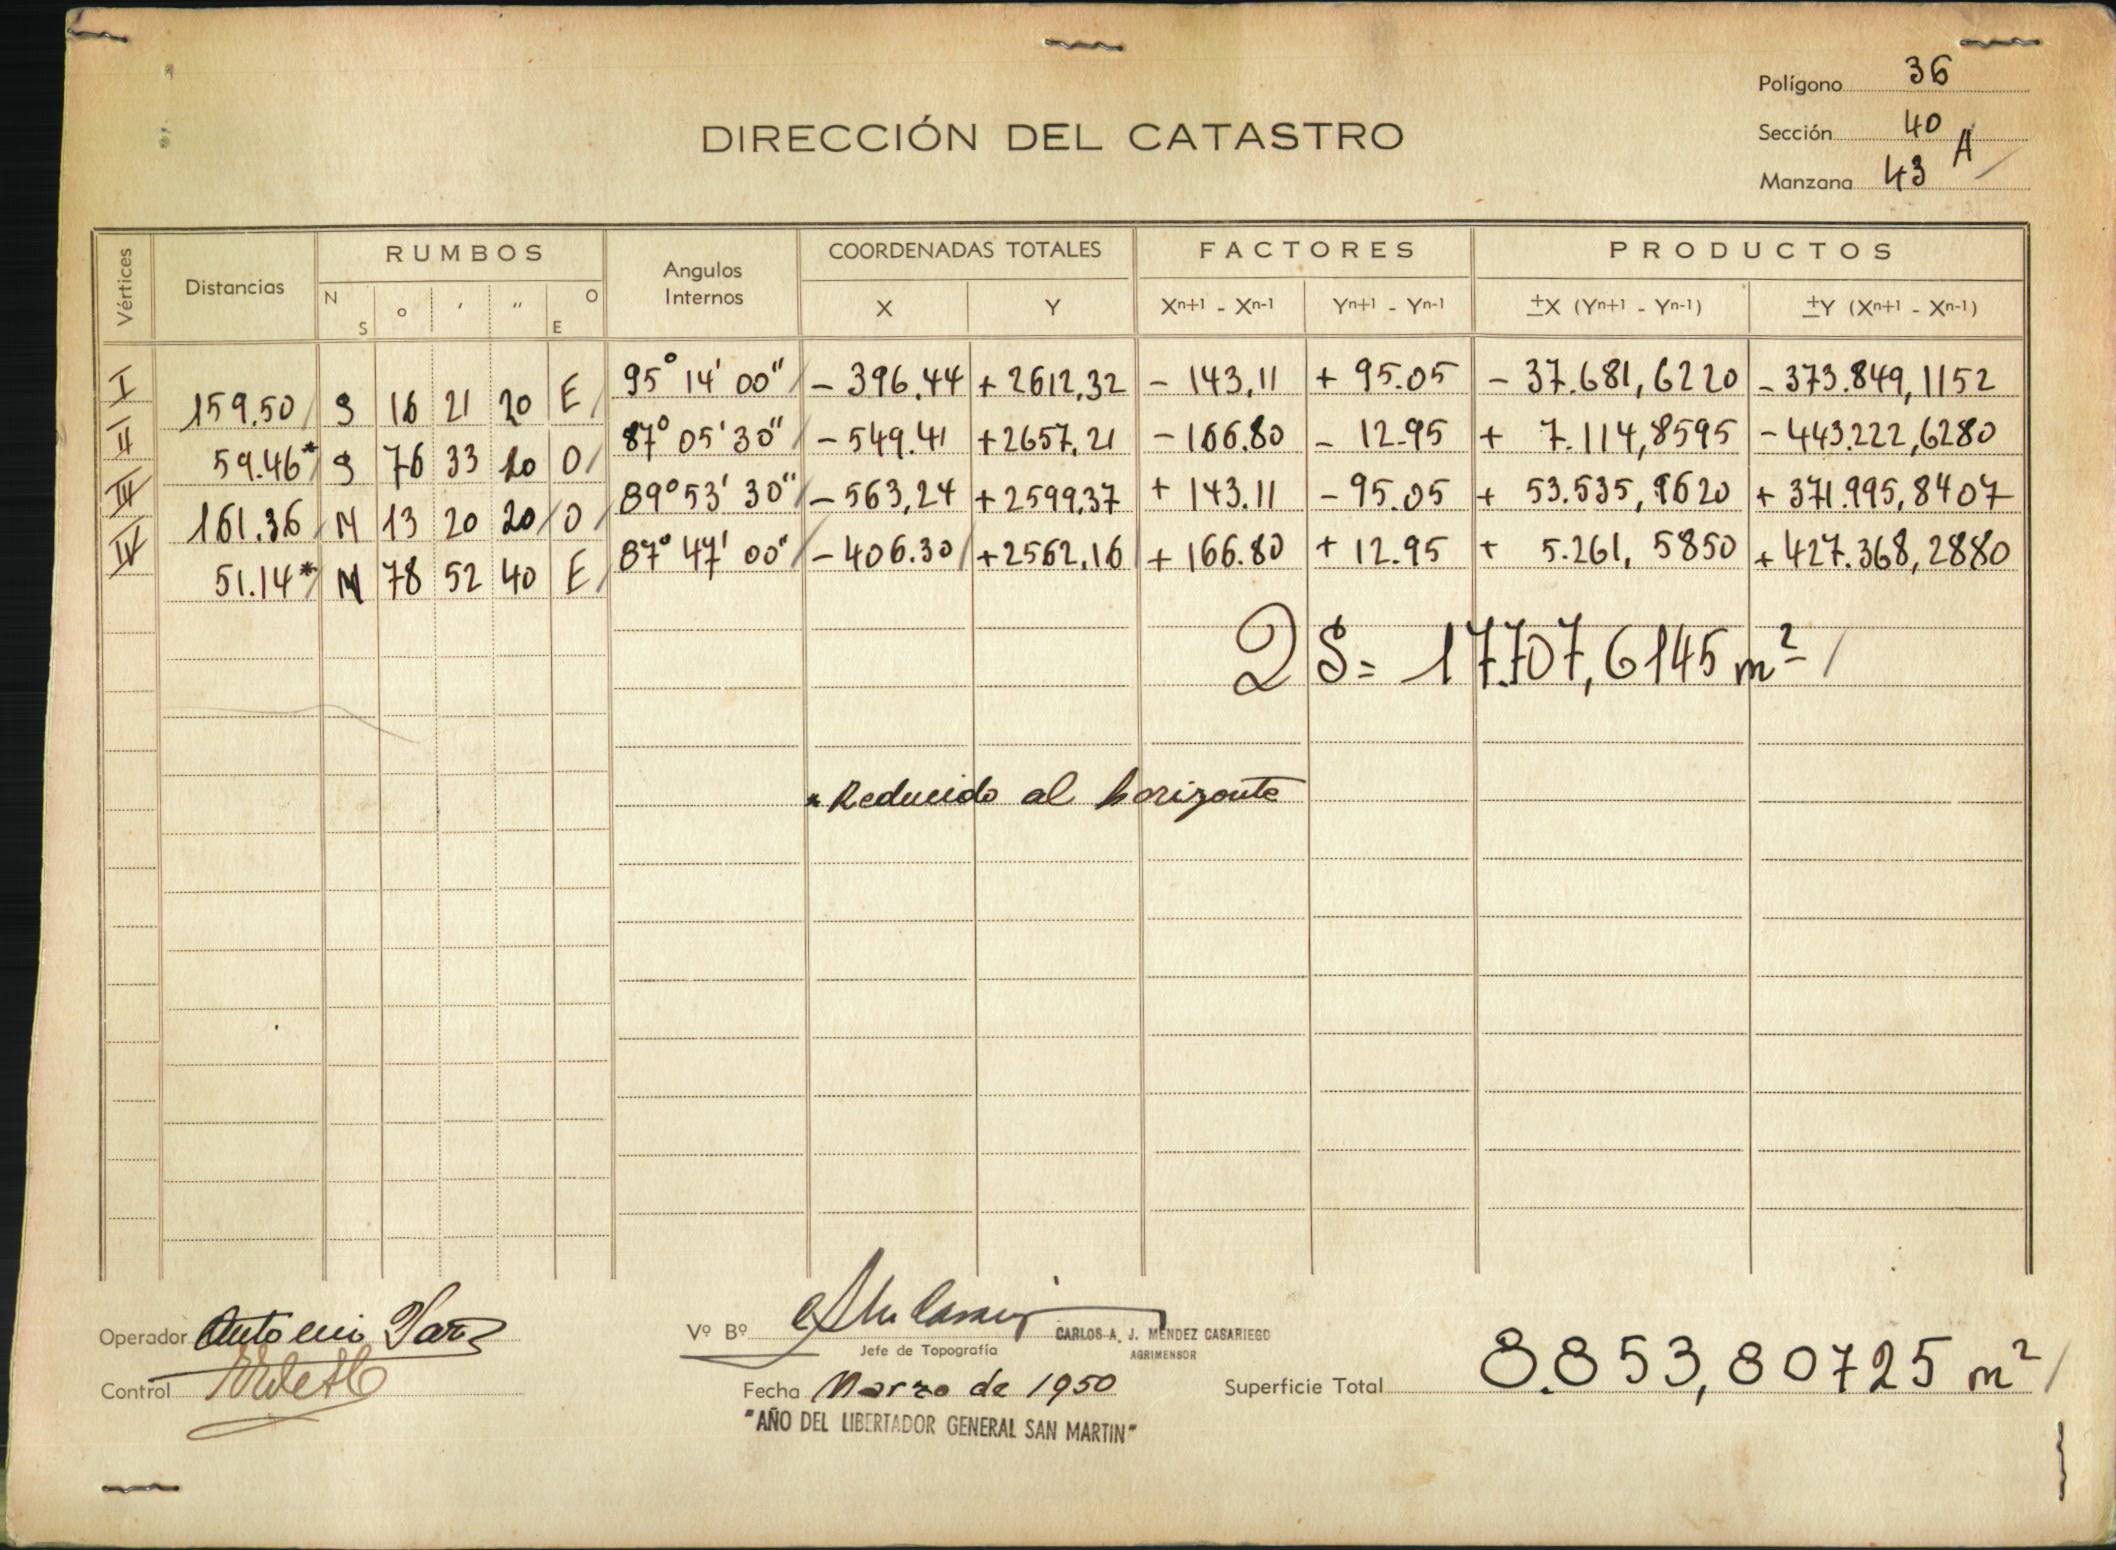 Polígono 36
DIRECCIÓN DEL CATASTRO
Sección 40
Manzana 43 A
Vértices Distancias RUMBOS N S ° ' " O E Angulos Internos COORDENADAS TOTALES X Y FACTORES Xn+1 - Xn-1 Yn+1 - Yn-1 PRODUCTOS ±X (Yn+1 - Yn-1) ±Y (Xn+1 - Xn-1)
I 159.50 S 16 21 20 E 95° 14' 00" - 396.44 + 2612,32 - 143,11 + 95.05 - 37.681,6220 - 373.849,1152
II 59.46* S 76 33 10 O 87° 05' 30" - 549.41 + 2657,21 - 166.80 - 12.95 + 7.114,8595 - 443.222,6280
III 161.36 N 13 20 20 O 89° 53' 30" - 563,24 + 2599,37 + 143.11 - 95.05 + 53.535,9620 + 371.995,8407
IV 51.14* N 78 52 40 E 87° 47' 00" - 406.30 + 2562,16 + 166.80 + 12.95 + 5.261,5850 + 427.368,2880
2S = 17.707,6145 m²
* Reducido al horizonte
Operador Antonio
Vº Bº CARLOS A. J. MENDEZ CASARIEGO
Jefe de Topografía AGRIMENSOR
Control
Fecha Marzo de 1950
Superficie Total 8.853,80725 m²
"AÑO DEL LIBERTADOR GENERAL SAN MARTIN"